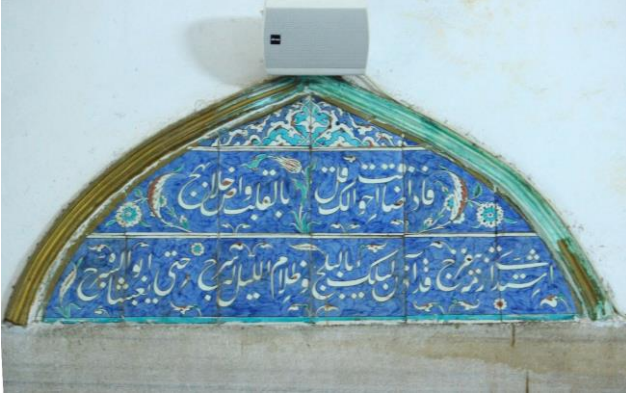 فاذا ضاقت احوالك قل بالقلب
اشتدي ازمة تنفرجي قد آذن ليلك بالبلج وظلام الليل له سرج حتى يغشاه ابو السرج